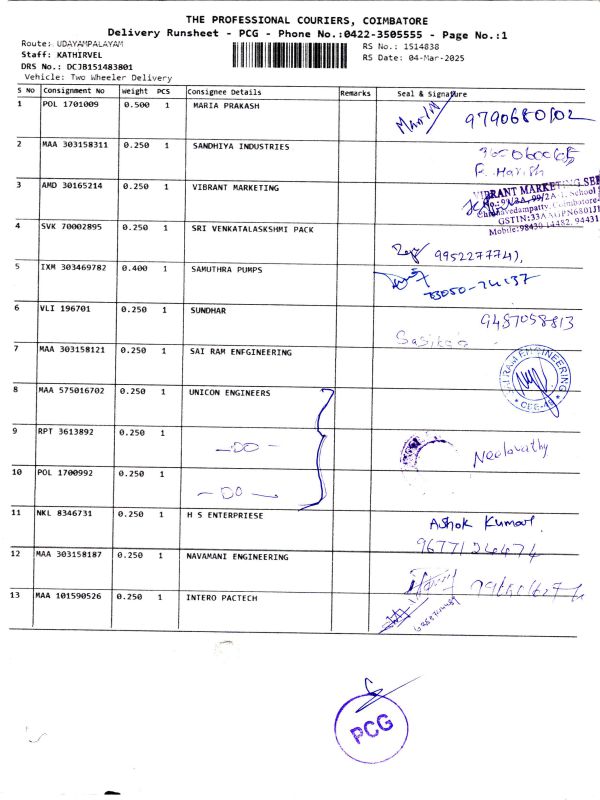 THE PROFESSIONAL COURIERS, COIMBATORE
Delivery Runsheet - PCG - Phone No.:0422-3505555 - Page No.:1
Route: UDAYAMPALAYAM
RS No.: 1514838
Staff: KATHIRVEL
RS Date: 04-Mar-2025
DRS No.: DCJB151483801
Vehicle: Two Wheeler Delivery
S No Consignment No Weight PCS Consignee Details Remarks Seal & Signature
1 POL 1701009 0.500 1 MARIA PRAKASH
2 MAA 303158311 0.250 1 SANDHIYA INDUSTRIES
3 AMD 30165214 0.250 1 VIBRANT MARKETING
VIBRANT MARKETING SER
4 SVK 70002895 0.250 1 SRI VENKATALASKSHMI PACK
995227774
5 IXM 303469782 0.400 1 SAMUTHRA PUMPS
6 VLI 196701 0.250 1 SUNDHAR 9487058813
7 MAA 303158121 0.250 1 SAI RAM ENFGINEERING
8 MAA 575016702 0.250 1 UNICON ENGINEERS
9 RPT 3613892 0.250 1 -DO- Neelavathy
10 POL 1700992 0.250 1 -DO-
11 NKL 8346731 0.250 1 H S ENTERPRIESE Ashok Kumar
9677124474
12 MAA 303158187 0.250 1 NAVAMANI ENGINEERING
13 MAA 101590526 0.250 1 INTERO PACTECH
PCG